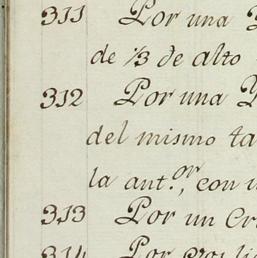 311 Por una
de 1/3 de alto
312 Por una
del mismo ta
la ant.or, con
313 Por un Cr
314 Por